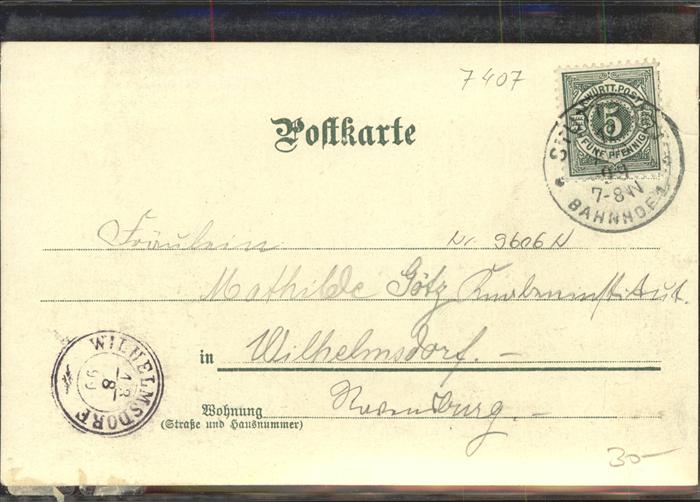 7407
Postkarte
K. WÜRTT. POST
5
FÜNF PFENNIG
99
7-8 N
BAHNHOF
Fräulein
Nr. 9606 N
Mathilde Götz Knabeninstitut.
in Wilhelmsdorf. –
Wohnung
(Straße und Hausnummer)
Ravensburg. –
WILHELMSDORF
13
8
99
30–